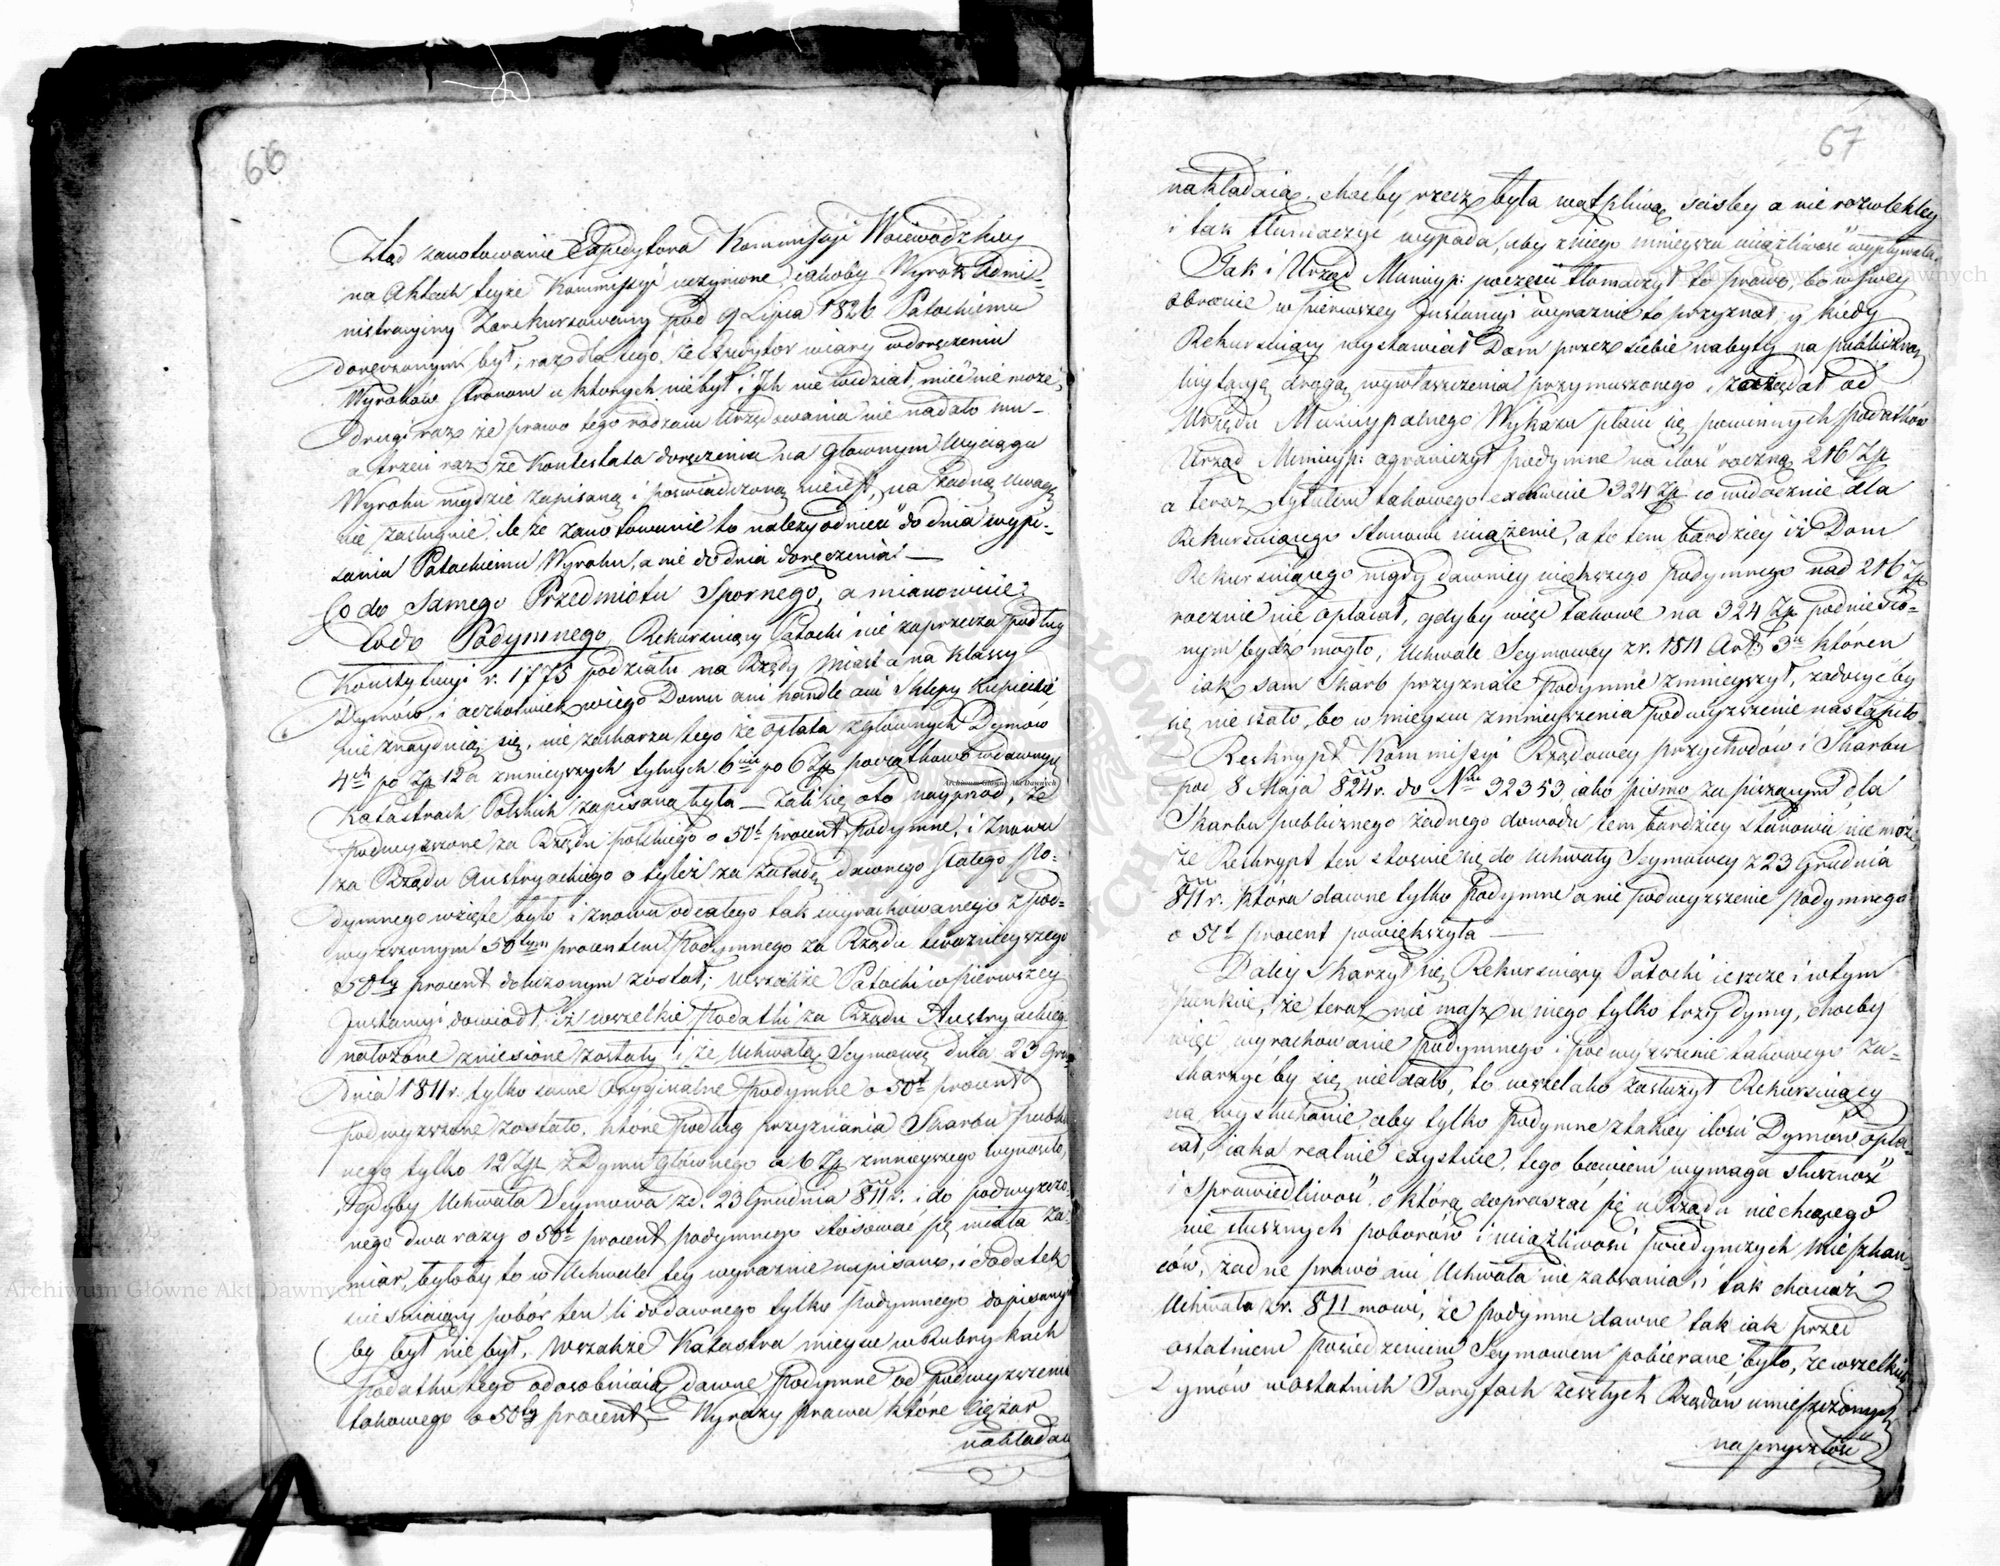 66
Ztąd zanotowanie Expedytora Kommissyi Woiewódzkiey
na Aktach teyże Kommissyi uczynione, iakoby Wyrok Admi-
nistracyiny Zarekursowany pod 9 Lipca 1826 Patochiemu
doręczonym był; raz dla tego, że Expedytor wiary w doręczeniu
Wyroków Stronom u których nie był i Ich nie widział, mieć nie może,
drugi raz że prawo tego rodzaiu Urzędowania nie nadało mu -
a trzeci raz że Kontestata doręczenia na głownym Wyciągu
Wyroku nigdzie zapisaną i poświadczoną nie iest, na żadną uwagę
nie zasługuie, ile że zanotowanie to należy odnieść do dnia wypi-
sania Patochiemu Wyroku, a nie do dnia doręczenia. —
Co do Samego Przedmiotu Spornego, a mianowicie:
Co do Podymnego, Rekursuiący Patochi nie zaprzecza podług
Konstytucyi r. 1775 podziału na Rzędy Miast a na Klassy
Dymów, i aczkolwiek w iego Domu ani handle ani Sklepy kupieckie
nie znayduią się, nie zaskarza tego że opłata z głównych Dymów
4ch po Zł 12 a zmnieyszych tylnych 6ciu po 6 Zł początkowo w dawnych
Katastrach Polskich zapisaną była — żali się oto nayprzód, że
podwyższone za Rządu polskiego o 50t procent Podymne, i znowu
za Rządu Austryackiego o tyleż za zasadę dawnego stałego Po-
dymnego wzięte było i znowu od całego tak wyrachowanego z pod-
wyższonym 50tym procentem Podymnego za Rządu teraźnieyszego
50ty procent dołożonym został; wszakże Patochi w pierwszey
Instancyi dowiódł, iż wszelkie Podatki za Rządu Austryackiego
nałożone zniesione zostały i że Uchwałą Seymową dnia 23 Gru-
dnia 1811 r. tylko same Oryginalne Podymne o 50t procent
podwyższone zostało, które podług przyznania Skarbu publicz
nego tylko 12 Zł z Dymu głównego a 6 Zł z mnieyszego wynosiło,
gdyby Uchwała Seymowa z d. 23 Grudnia 811 r. i do podwyższo-
nego dwa razy o 50t procent podymnego stósować się miała za-
miar, byłoby to w Uchwale tey wyraźnie napisano, i Podatek
nieśmiący pobór ten li do dawnego tylko podymnego dopisanym
by był nie był, wszakże Katastra mieysce w Rubrykach
Podatku tego odosobniaią dawne Podymne od Podwyższenia
takowego o 50ty procent. — Wyrazy prawa które ciężar
nakładaią
67
nakładaią, choćby rzecz była wątpliwą, ścisley a nie rozwlekley
i tak tłumaczyć wypada, aby z niego mnieysza uciążliwość wypływała.
Tak i Urząd Municyp: poczęści tłomaczył to prawo, bo w swey
obronie w pierwszey Instancyi wyraźnie to przyznał, y kiedy
Rekursuiący wystawiał Dom przez siebie nabyty na publiczną
licytacyę drogą wywłaszczenia przymuszonego, zażądał od
Urzędu Municypalnego Wykazu płacić się powinnych podatków
Urząd Municyp: ograniczył podymne na ilość roczną 216 Zł
a teraz tytułem takowego exekwuie 324 Zł co widocznie dla
Rekursuiącego stanowi uciążenie, a to tem bardziey iż Dom
Rekursuiącego nigdy dawniey większego podymnego nad 216 Zł
rocznie nie opłacał, gdyby więc takowe na 324 Zł podniesio-
nym bydź mogło, Uchwale Seymowey z r. 1811 Art: 3ci któren
iak sam Skarb przyznaie Podymne zmnieyszył, zadosyć by
się nie stało, bo w mieyscu zmnieyszenia Podwyższenie nastąpiło.
Reskrypt Kommissyi Rządowey przychodów i Skarbu
pod 8 Maja 824 r. do Nru 32353, iako pismo za piszącym dla
Skarbu publicznego żadnego dowodu, tem bardziey stanowić nie może,
że Reskrypt ten stosuie się do Uchwały Seymowey z 23 Grudnia
811 r. która dawne tylko Podymne a nie podwyższenie podymnego
o 50t procent powiększyła —
Daley skarży się Rekursuiący Patochi ieszcze i w tym
punkcie, że teraz nie masz u niego tylko trzy dymy, choćby
więc wyrachowanie Podymnego i podwyższenie takowego za-
skarzyć by się nie dało, to wszelako zasłużył Rekursuiący
na wysłuchanie, aby tylko Podymne z takiey ilości Dymów opła-
cał, iaka realnie exystuie, tego bowiem wymaga słuszność
i sprawiedliwość, o którą dopraszać się u Rządu nie chcącego
nie słusznych poborów i uciążliwości poiedynczych Mieszkań-
ców, żadne prawo ani Uchwała nie zabrania, i tak chociaż
Uchwała z r. 811 mowi, że podymne dawne tak iak przed
ostatniem posiedzeniem Seymowem pobierane, było, ze wszelkich
Dymów w ostatnich Taryfach zeszłych Rządów umieszczonych
na przyszłość
Archiwum Główne Akt Dawnych